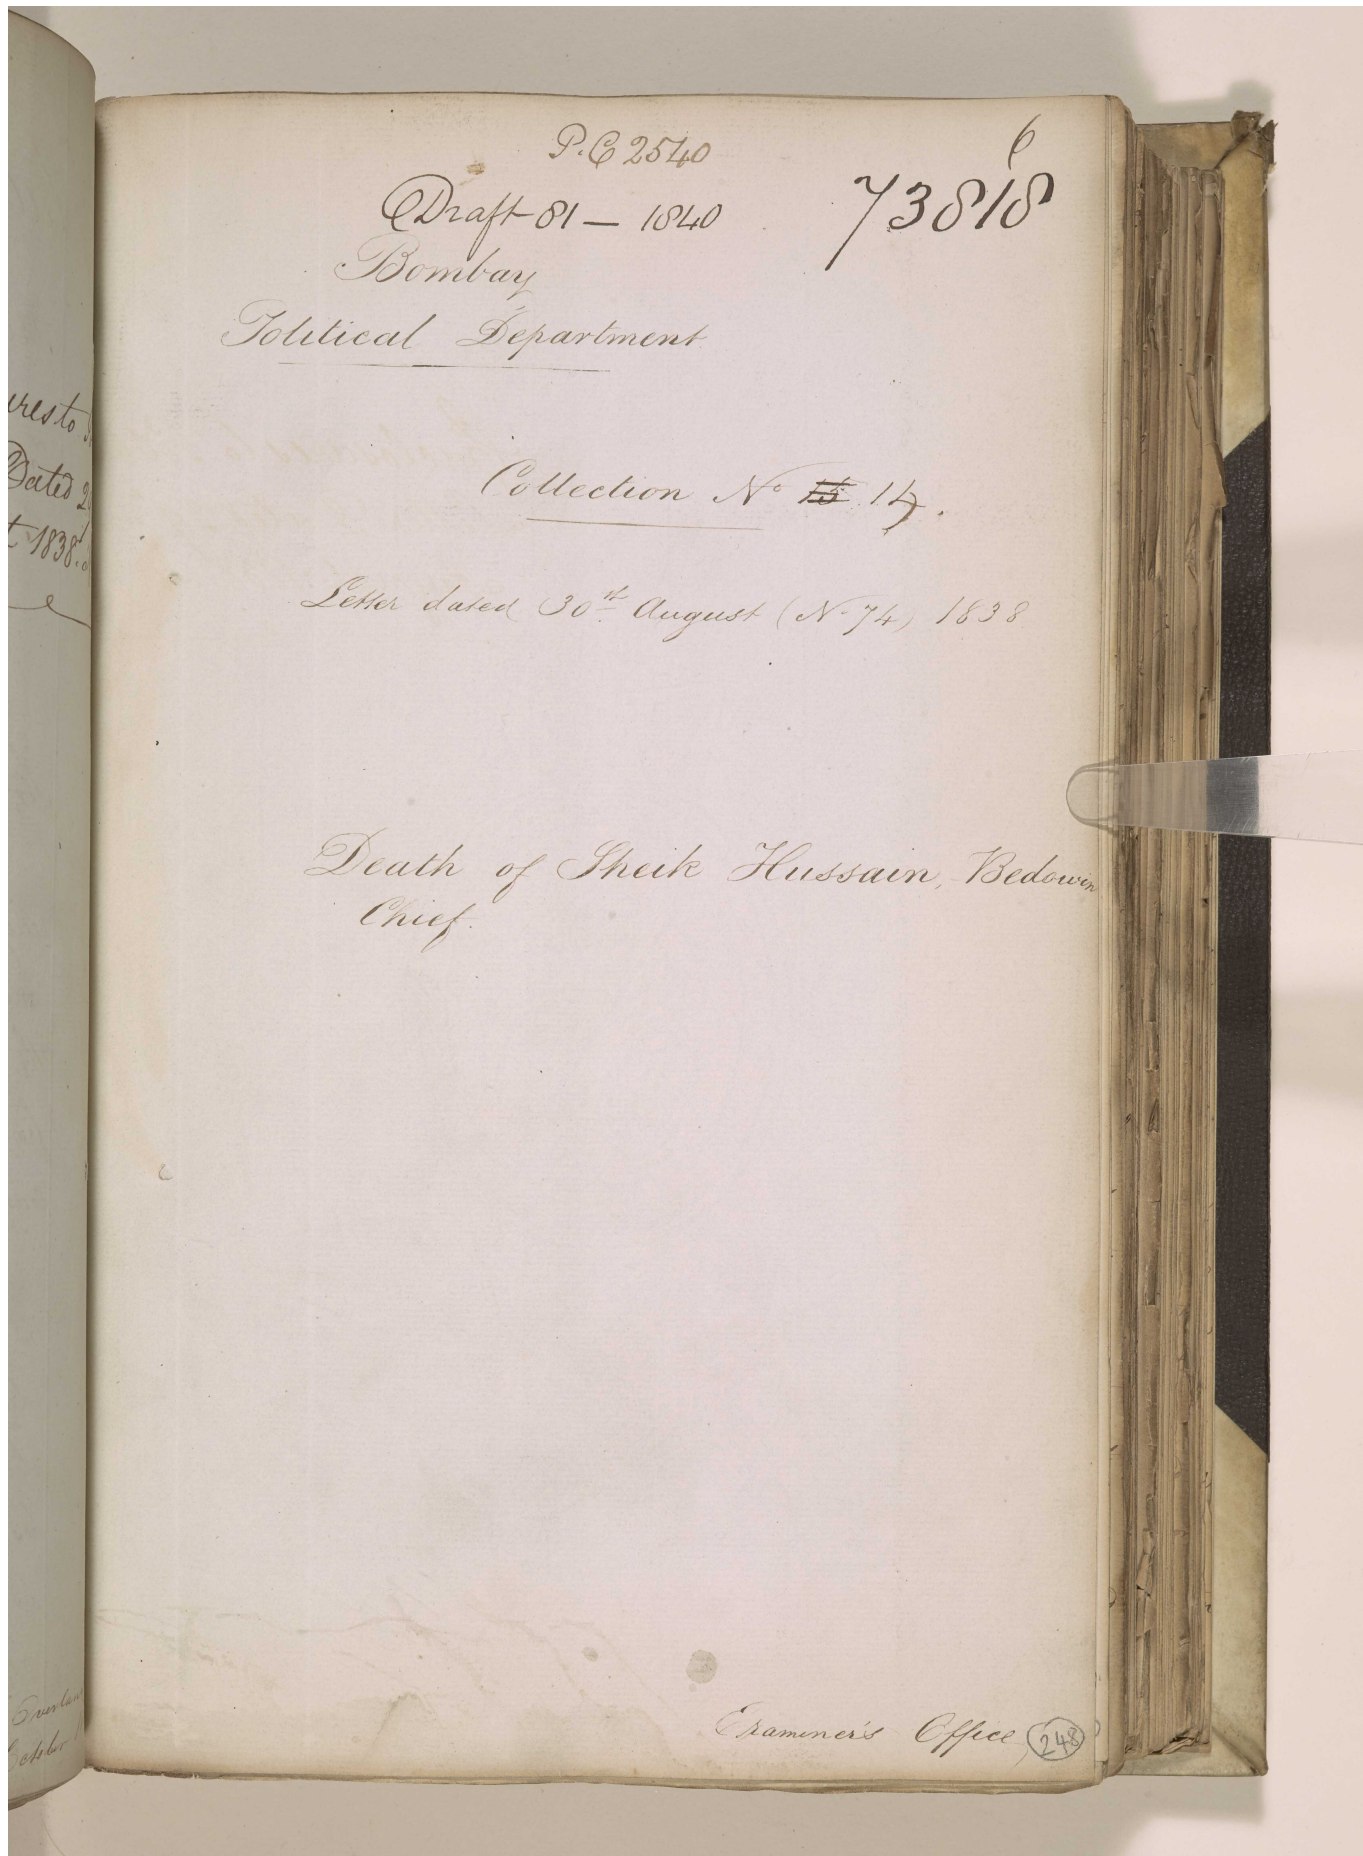 P.C 2540
6
Draft 81 — 1840
73818
Bombay
Political Department
Collection No 15 14.
Letter dated 30th August (No 74) 1838
Death of Sheik Hussain, Bedowin
Chief.
Examiner's Office
248
ures to
Dated 2
t 1838.